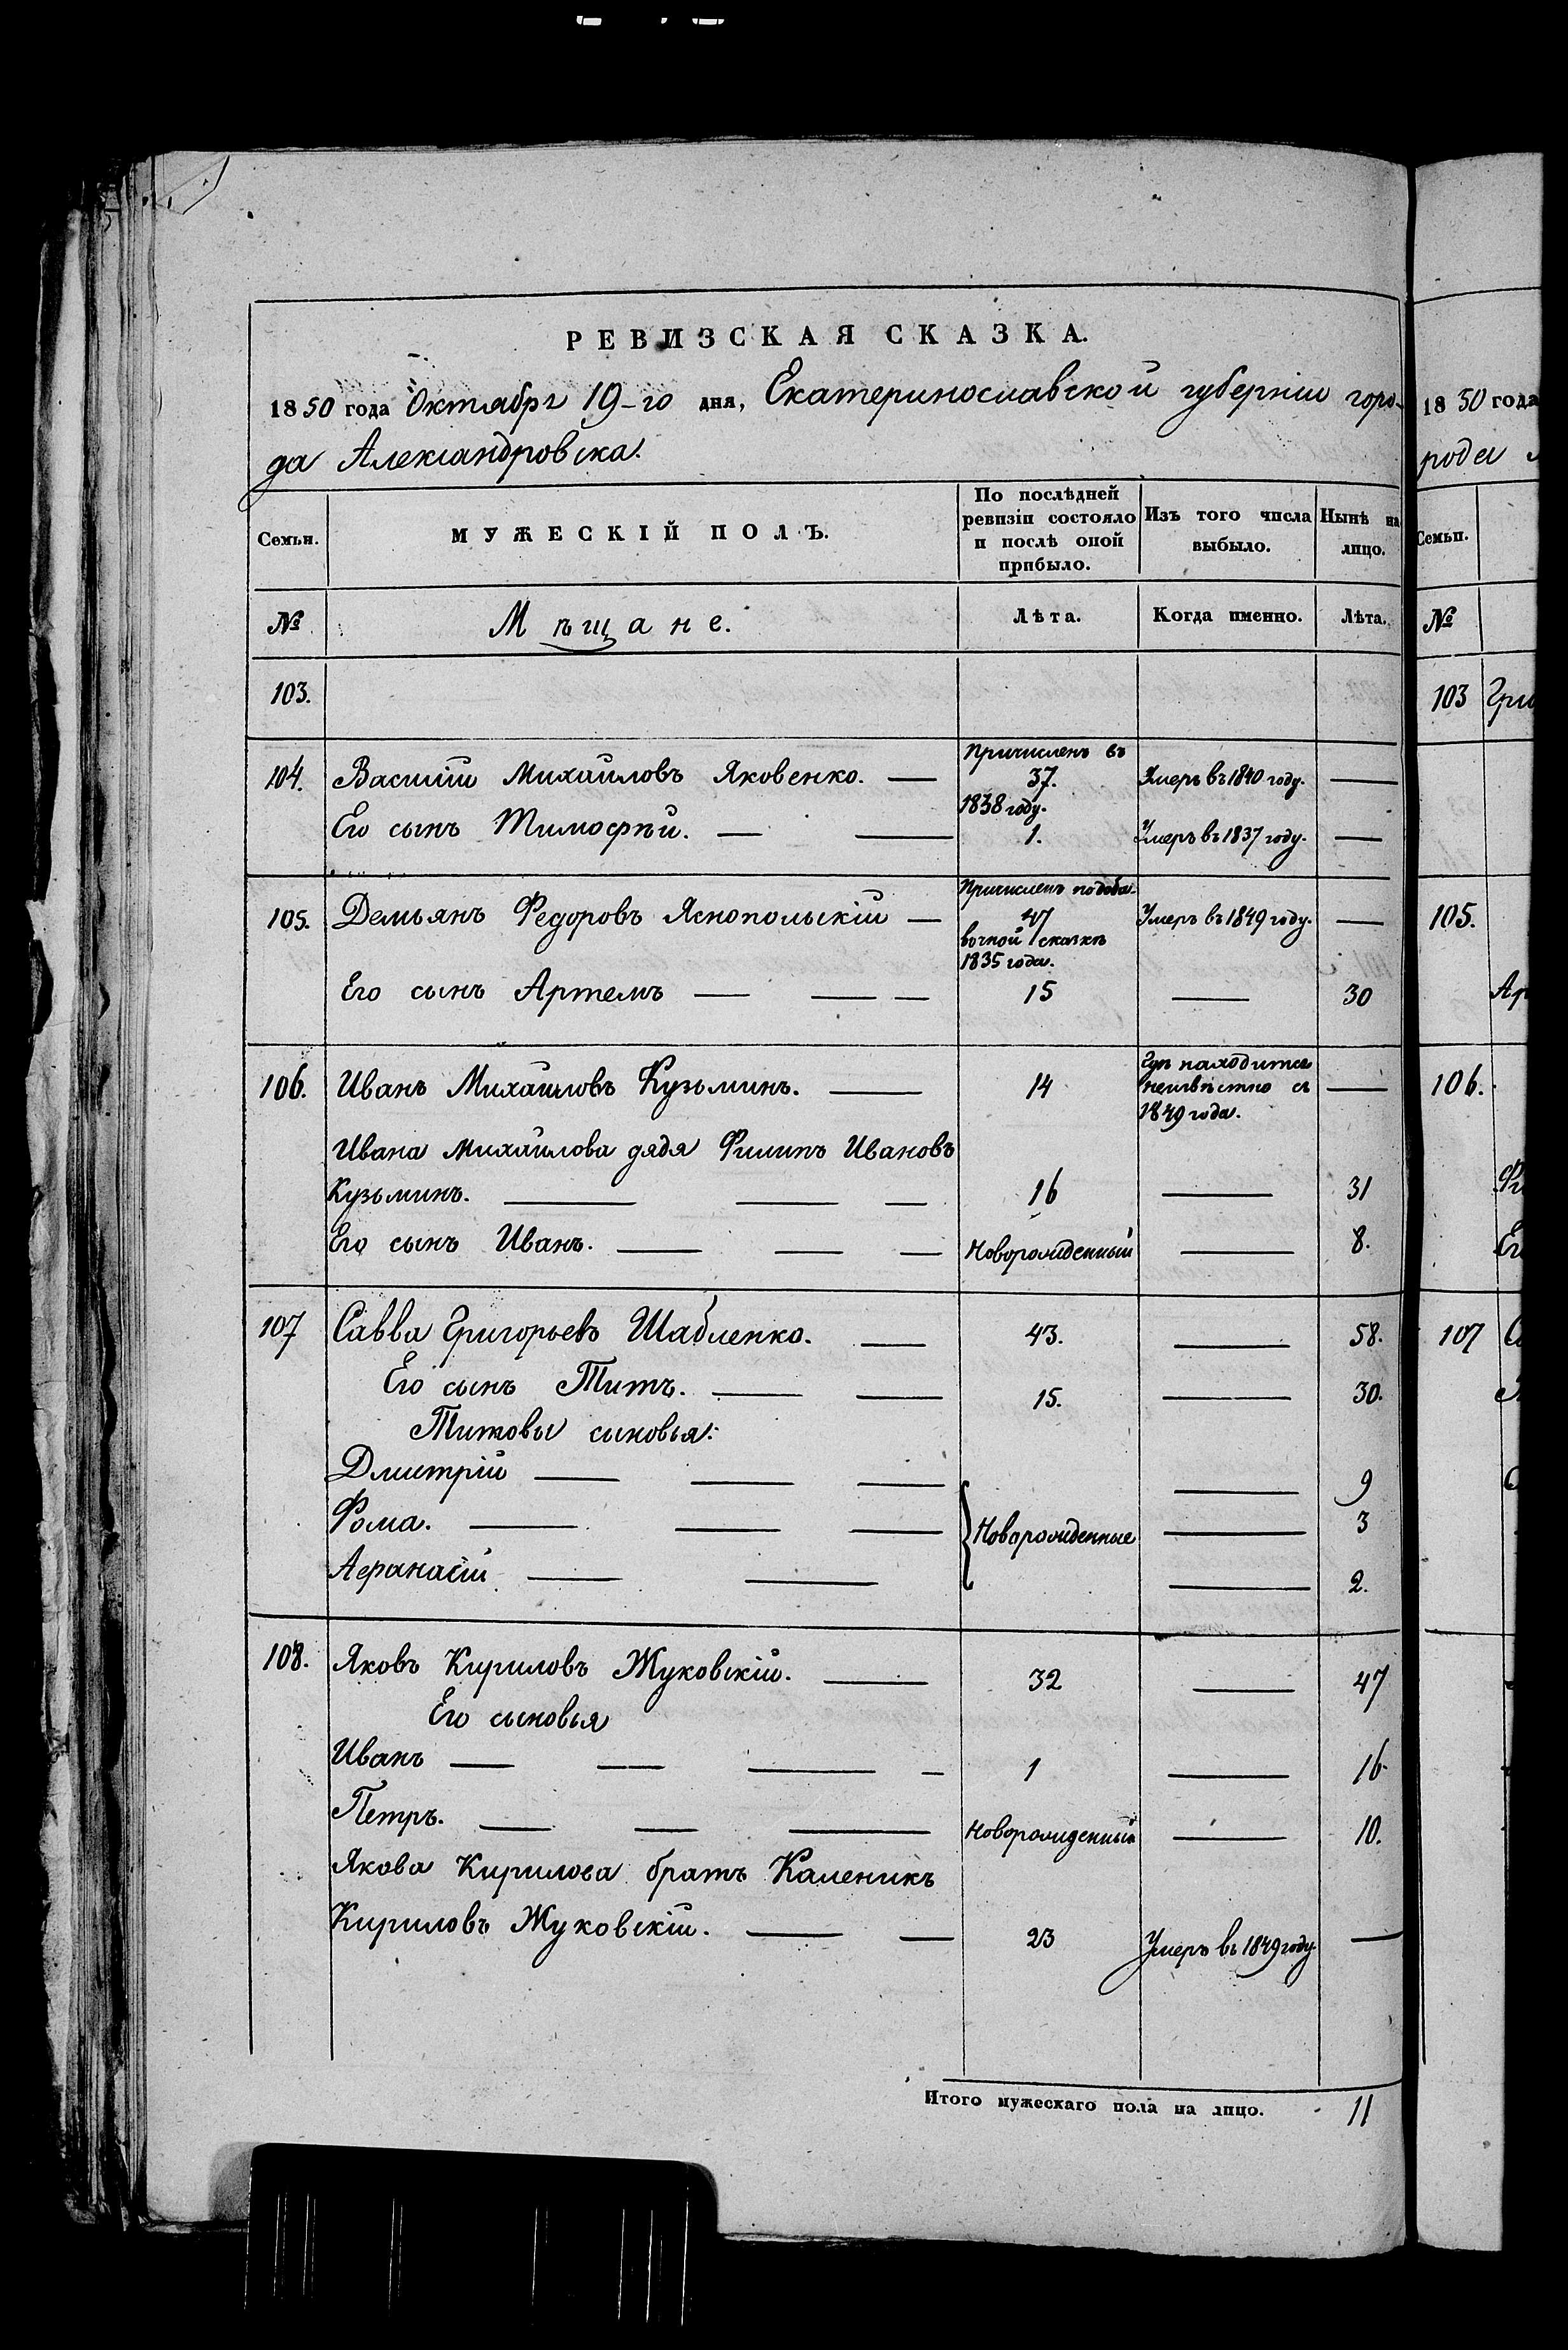 РЕВИЗСКАЯ СКАЗКА.
1850 года Октября 19-го дня, Екатеринославской губерніи горо-
да Александровска.
Семьи.
МУЖЕСКІЙ ПОЛЪ.
По послѣдней ревизіи состояло и послѣ оной прибыло.
Изъ того числа выбыло.
Нынѣ на лицо.
№
Мѣщане.
Лѣта.
Когда именно.
Лѣта.
103.
104. Василій Михайловъ Яковенко. — Причисленъ въ 37. 1838 году. Умеръ въ 1840 году. —
Его сынъ Тимофѣй. — — 1. Умеръ въ 1837 году. —
105. Демьянъ Федоровъ Яснопольскій — Причисленъ по доба- 47 вочной сказкѣ 1835 года. Умеръ въ 1849 году. —
Его сынъ Артемъ — — — 15 — 30
106. Иванъ Михайловъ Кузьминъ. — 14 Гдѣ находится неизвѣстно съ 1849 года. —
Ивана Михайлова дядя Филипъ Ивановъ
Кузьминъ. — — — 16 — 31
Его сынъ Иванъ. — — — Новорожденный — 8.
107 Савва Григорьевъ Шабленко. — 43. — 58.
Его сынъ Титъ. — — 15. — 30.
Титовы сыновья:
Дмитрій — — — — 9
Фома. — — — Новорожденные — 3
Афанасій — — — 2.
108. Яковъ Кириловъ Жуковскій. — 32 — 47
Его сыновья
Иванъ — — — — 1 — 16
Петръ. — — — Новорожденный — 10.
Якова Кирилова братъ Каленикъ
Кириловъ Жуковскій. — — 23 Умеръ въ 1849 году. —
Итого мужескаго пола на лицо. 11
1850 года
рода
Семьи.
№
103 Гри
105.
Ар
106.
Фи
Ег
107